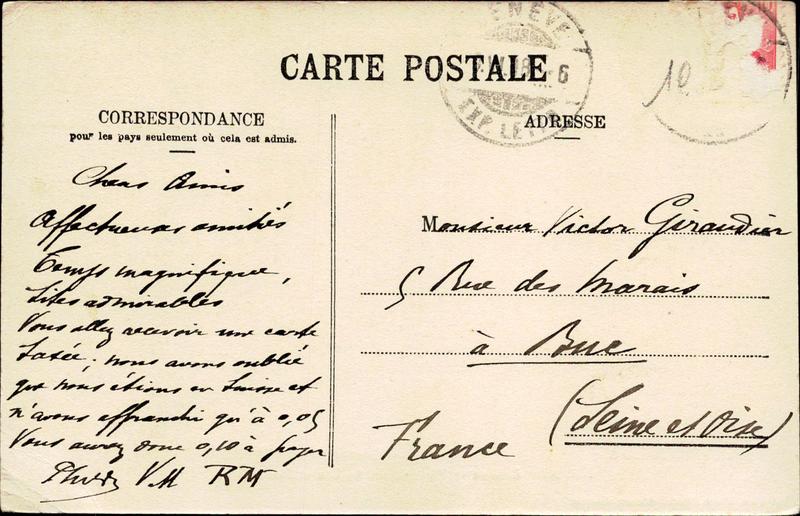 CARTE POSTALE
GENÈVE
EXP. LETTR
6
10
CORRESPONDANCE
pour les pays seulement où cela est admis.
ADRESSE
Chers Amis
Affectueuses amitiés
Temps magnifique,
Sites admirables
Vous allez recevoir une carte
taxée; nous avons oublié
que nous étions en Suisse et
n'avons affranchi qu'à 0,05
Vous aurez donc 0,10 à payer
VM RM
Monsieur Victor Giraudier
5 Rue des Marais
à Buc
(Seine et Oise)
France